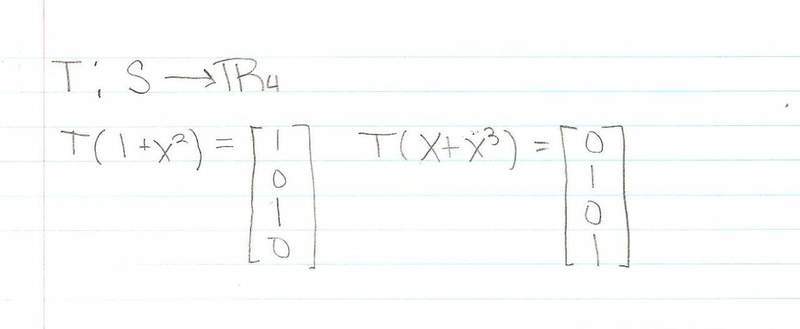 T: S → ℝ₄
T(1+x²) = [1 0 1 0] T(x+x³) = [0 1 0 1]